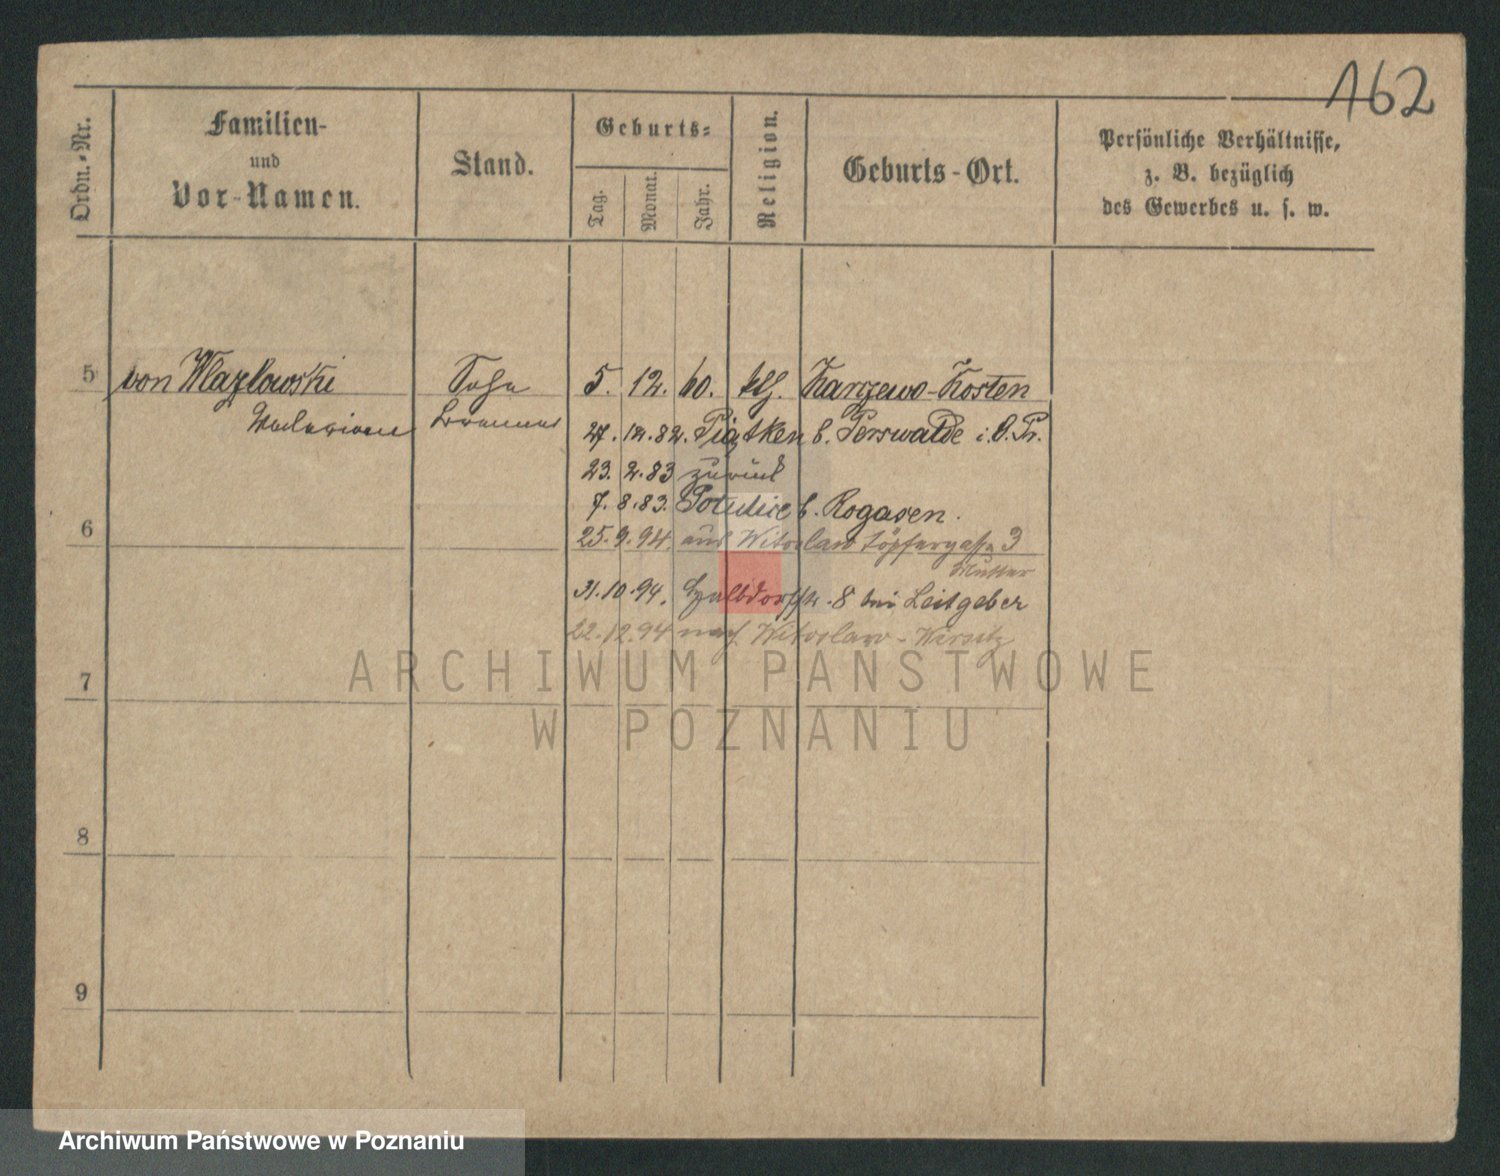 162
Ordn.-Nr.
Familien-
und
Vor-Namen.
Stand.
Geburts-
Tag.
Monat.
Jahr.
Religion.
Geburts-Ort.
Persönliche Verhältnisse,
z. B. bezüglich
des Gewerbes u. s. w.
5 von Wlazlowski Sohn 5. 12. 60. kth. Karzewo-Kosten
27. 12. 82. Piątken b. Perswalde i. O. Pr.
23. 2. 83 zurück
7. 8. 83. Potulice b. Rogasen.
6
25. 9. 94. aus Witoslaw Töpfergasse 3
Mutter
31. 10. 94. Halbdorfstr. 8 bei Leitgeber
22. 12. 94 nach Witoslaw - Wirsitz
ARCHIWUM PAŃSTWOWE
W POZNANIU
7
8
9
Archiwum Państwowe w Poznaniu